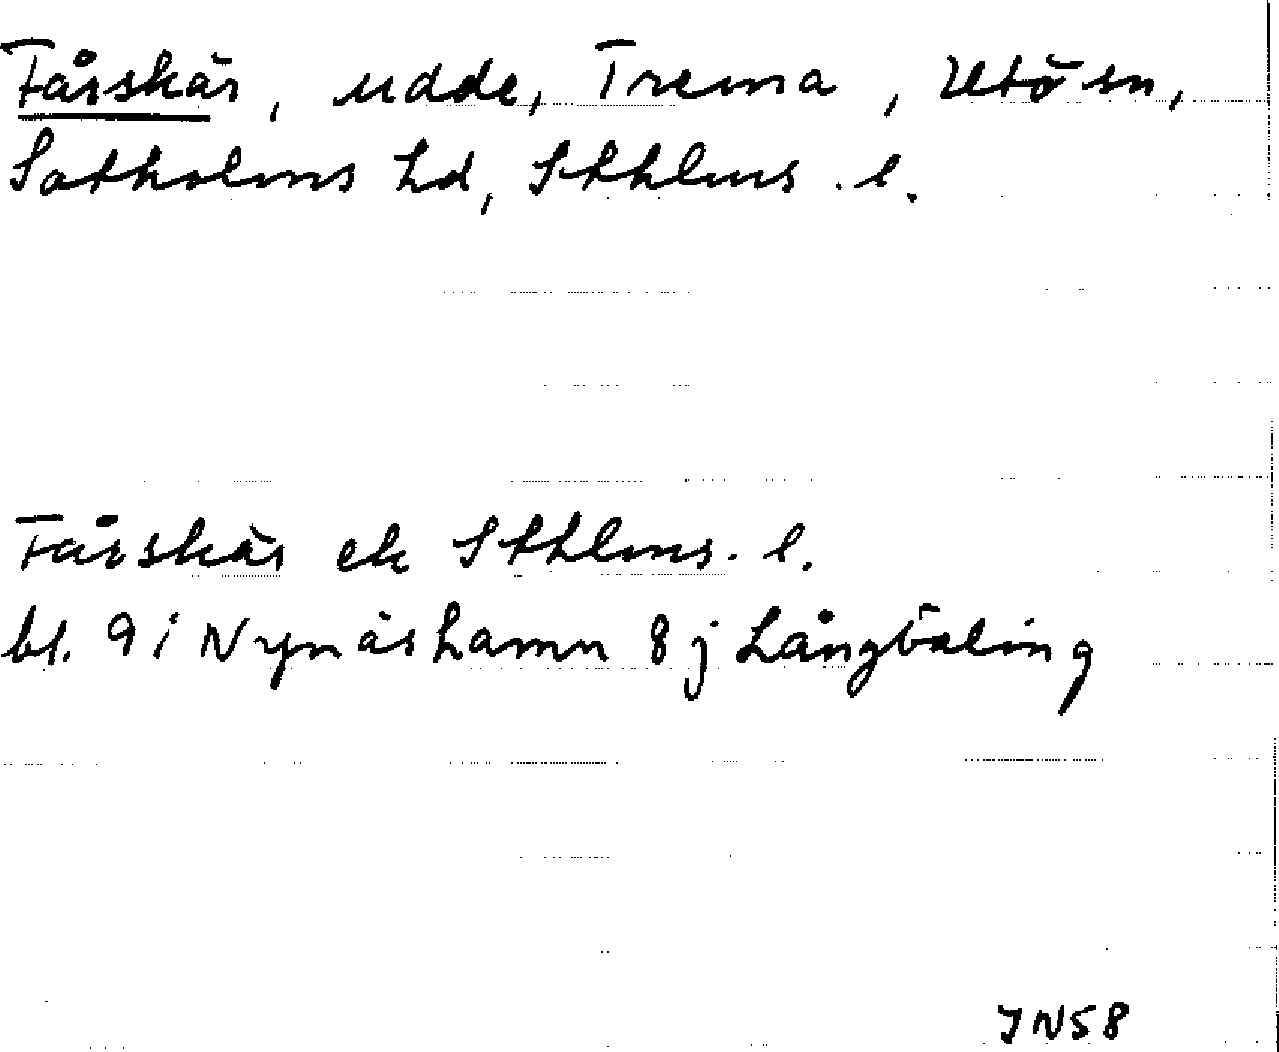 Fårskär, udde, Trema, Utö sn,
Sotholms hd, Sthlms. l.
Fårskär ek Sthlms. l.
bl. 9 i Nynäshamn 8 j Långbäling
JN58